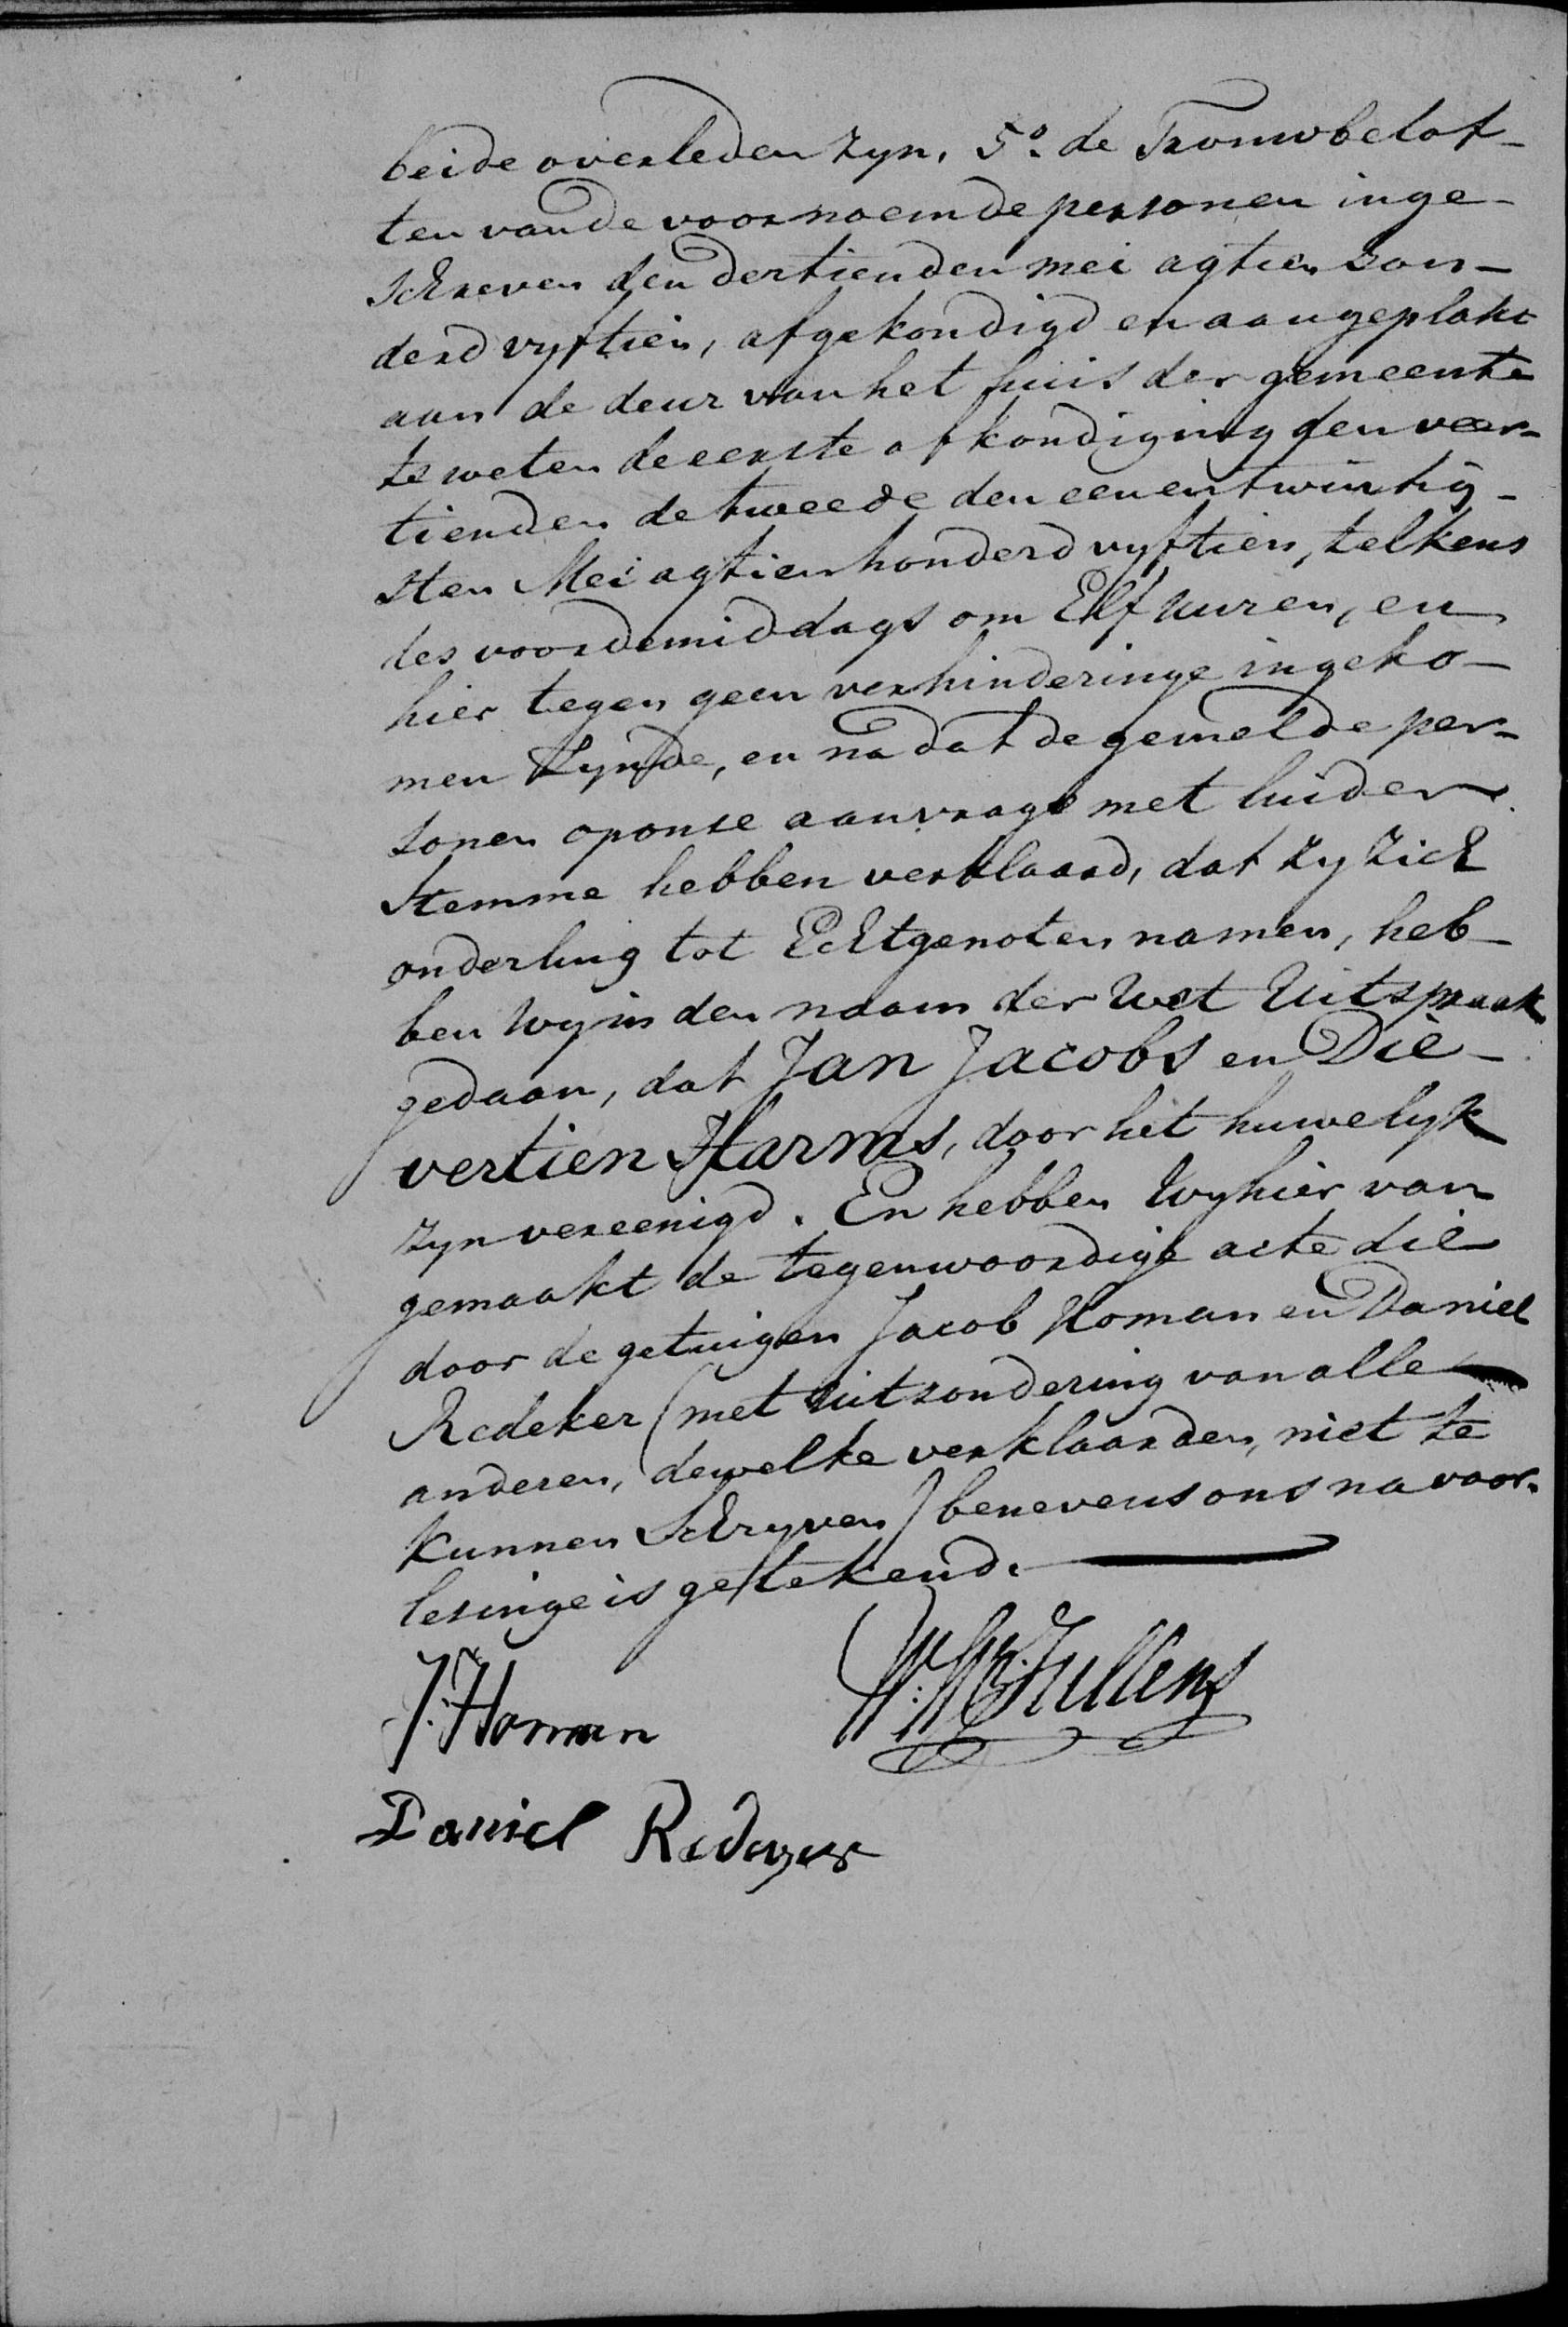 beide overleden zyn. 5º de Trouwbelof-
ten van de voornoemde personen inge-
schreven den dertienden mei agtien hon-
derd vyftien, afgekondigd en aangeplakt
aan de deur van het huis der gemeente
te weten de eerste afkondiging den veer-
tienden de tweede den eenentwintig-
sten Mei agtienhonderd vyftien, telkens
des voordemiddags om Elf uuren, en
hier tegen geen verhinderinge ingeko-
men zynde, en na dat de gemelde per-
sonen op onse aanvrage met luider
stemme hebben verklaard, dat zy zich
onderling tot Echtgenoten namen, heb-
ben Wy in den naam der Wet Uitspraak
gedaan, dat Jan Jacobs en Die-
vertien Harms, door het huwelyk
zyn vereenigd. En hebben Wy hier van
gemaakt de tegenwoordige acte die
door de getuigen Jacob Homan en Daniel
Redeker (met uitzondering van alle
anderen, dewelke verklaarden, niet te
kunnen Schryven) benevens ons na voor-
lesinge is getekend.
J. Homan
Daniel